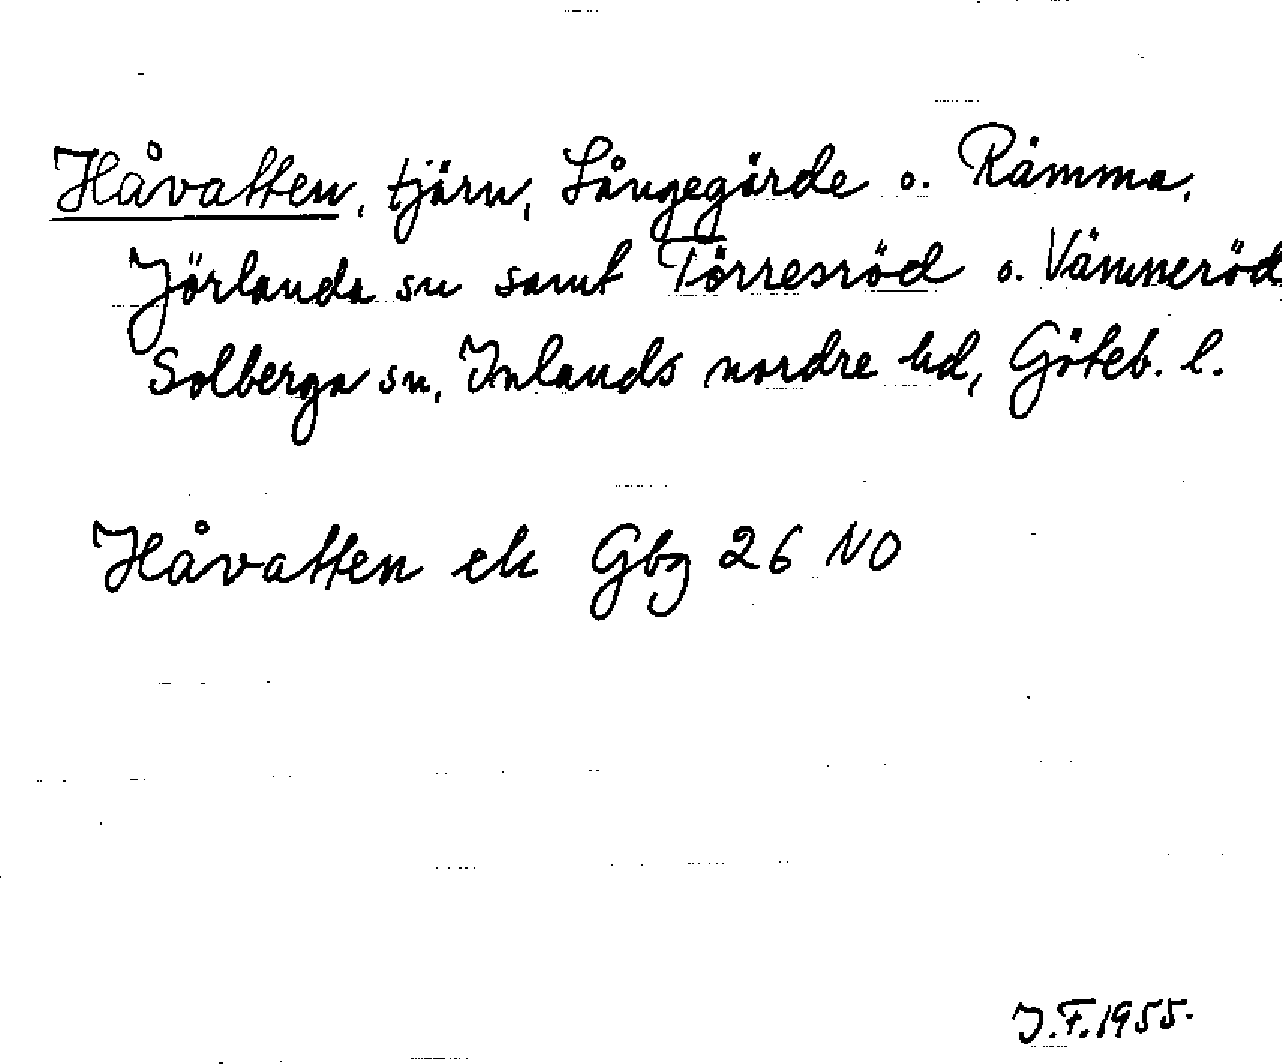 Håvatten, tjärn, Långegärde o. Rämma,
Jörlanda sn samt Törresröd o. Vämmeröd
Solberga sn, Inlands nordre hd, Göteb. l.
Håvatten ek Gbg 26 NO
J.F. 1955.